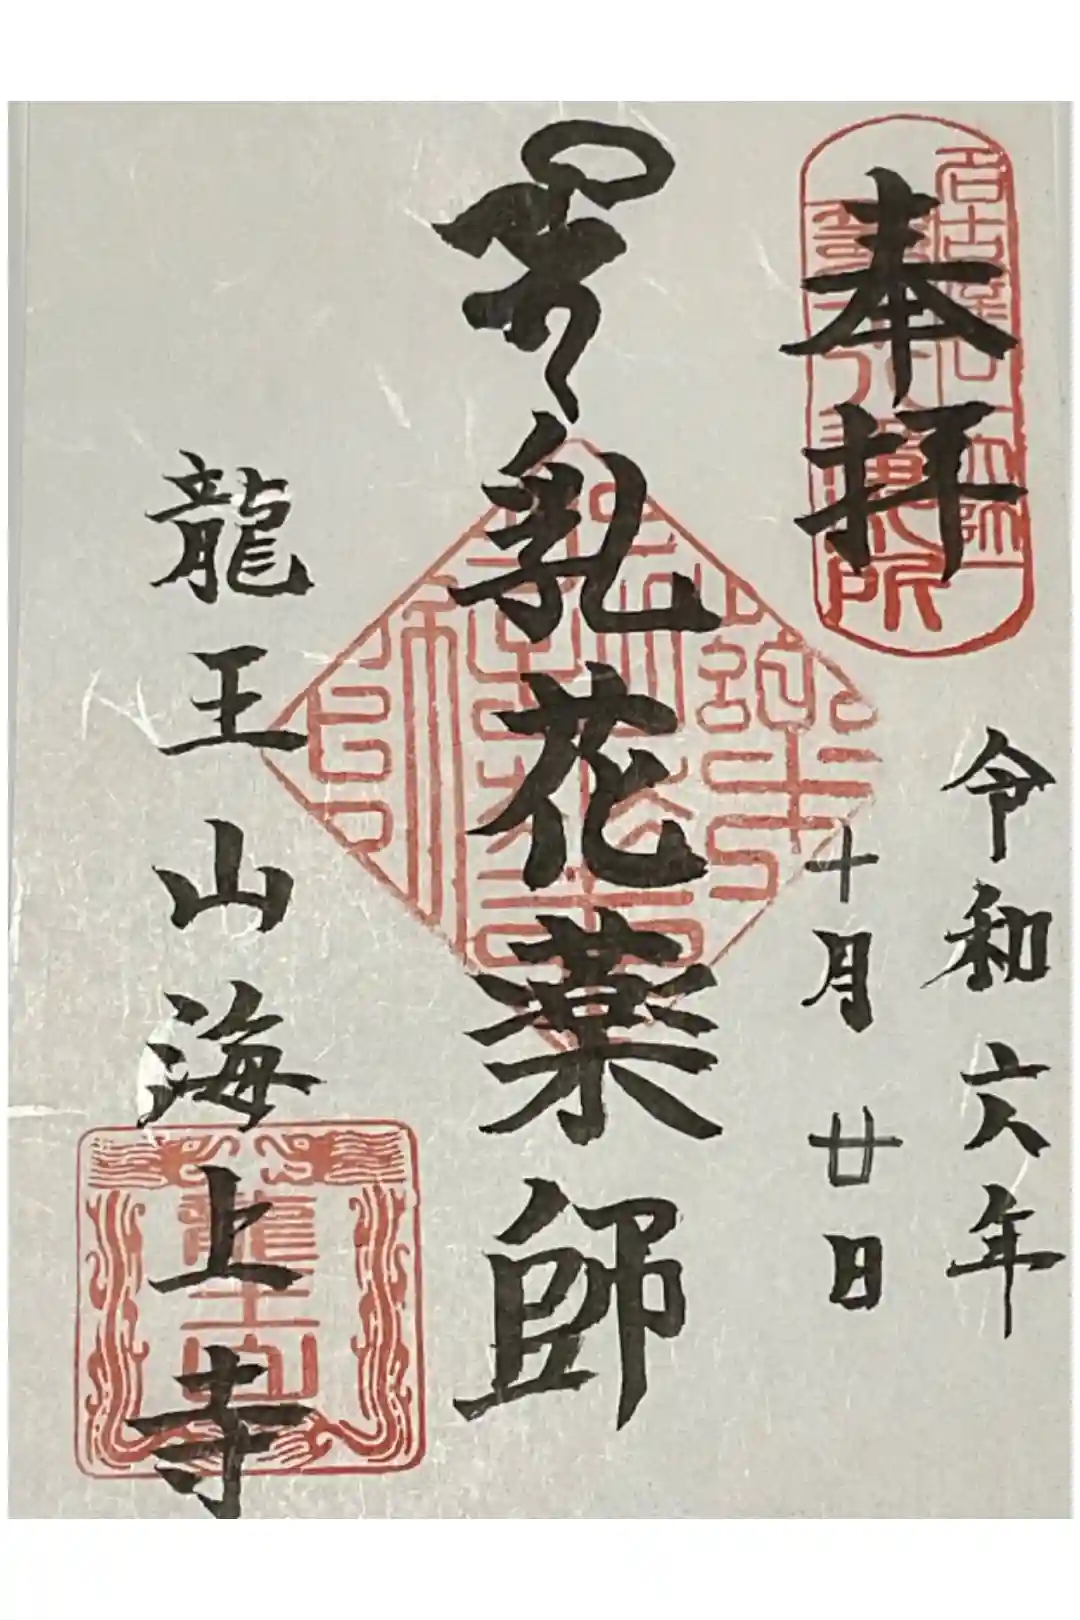 奉拝
令和六年
十月廿日
乳花薬師
龍王山海上寺
龍王山